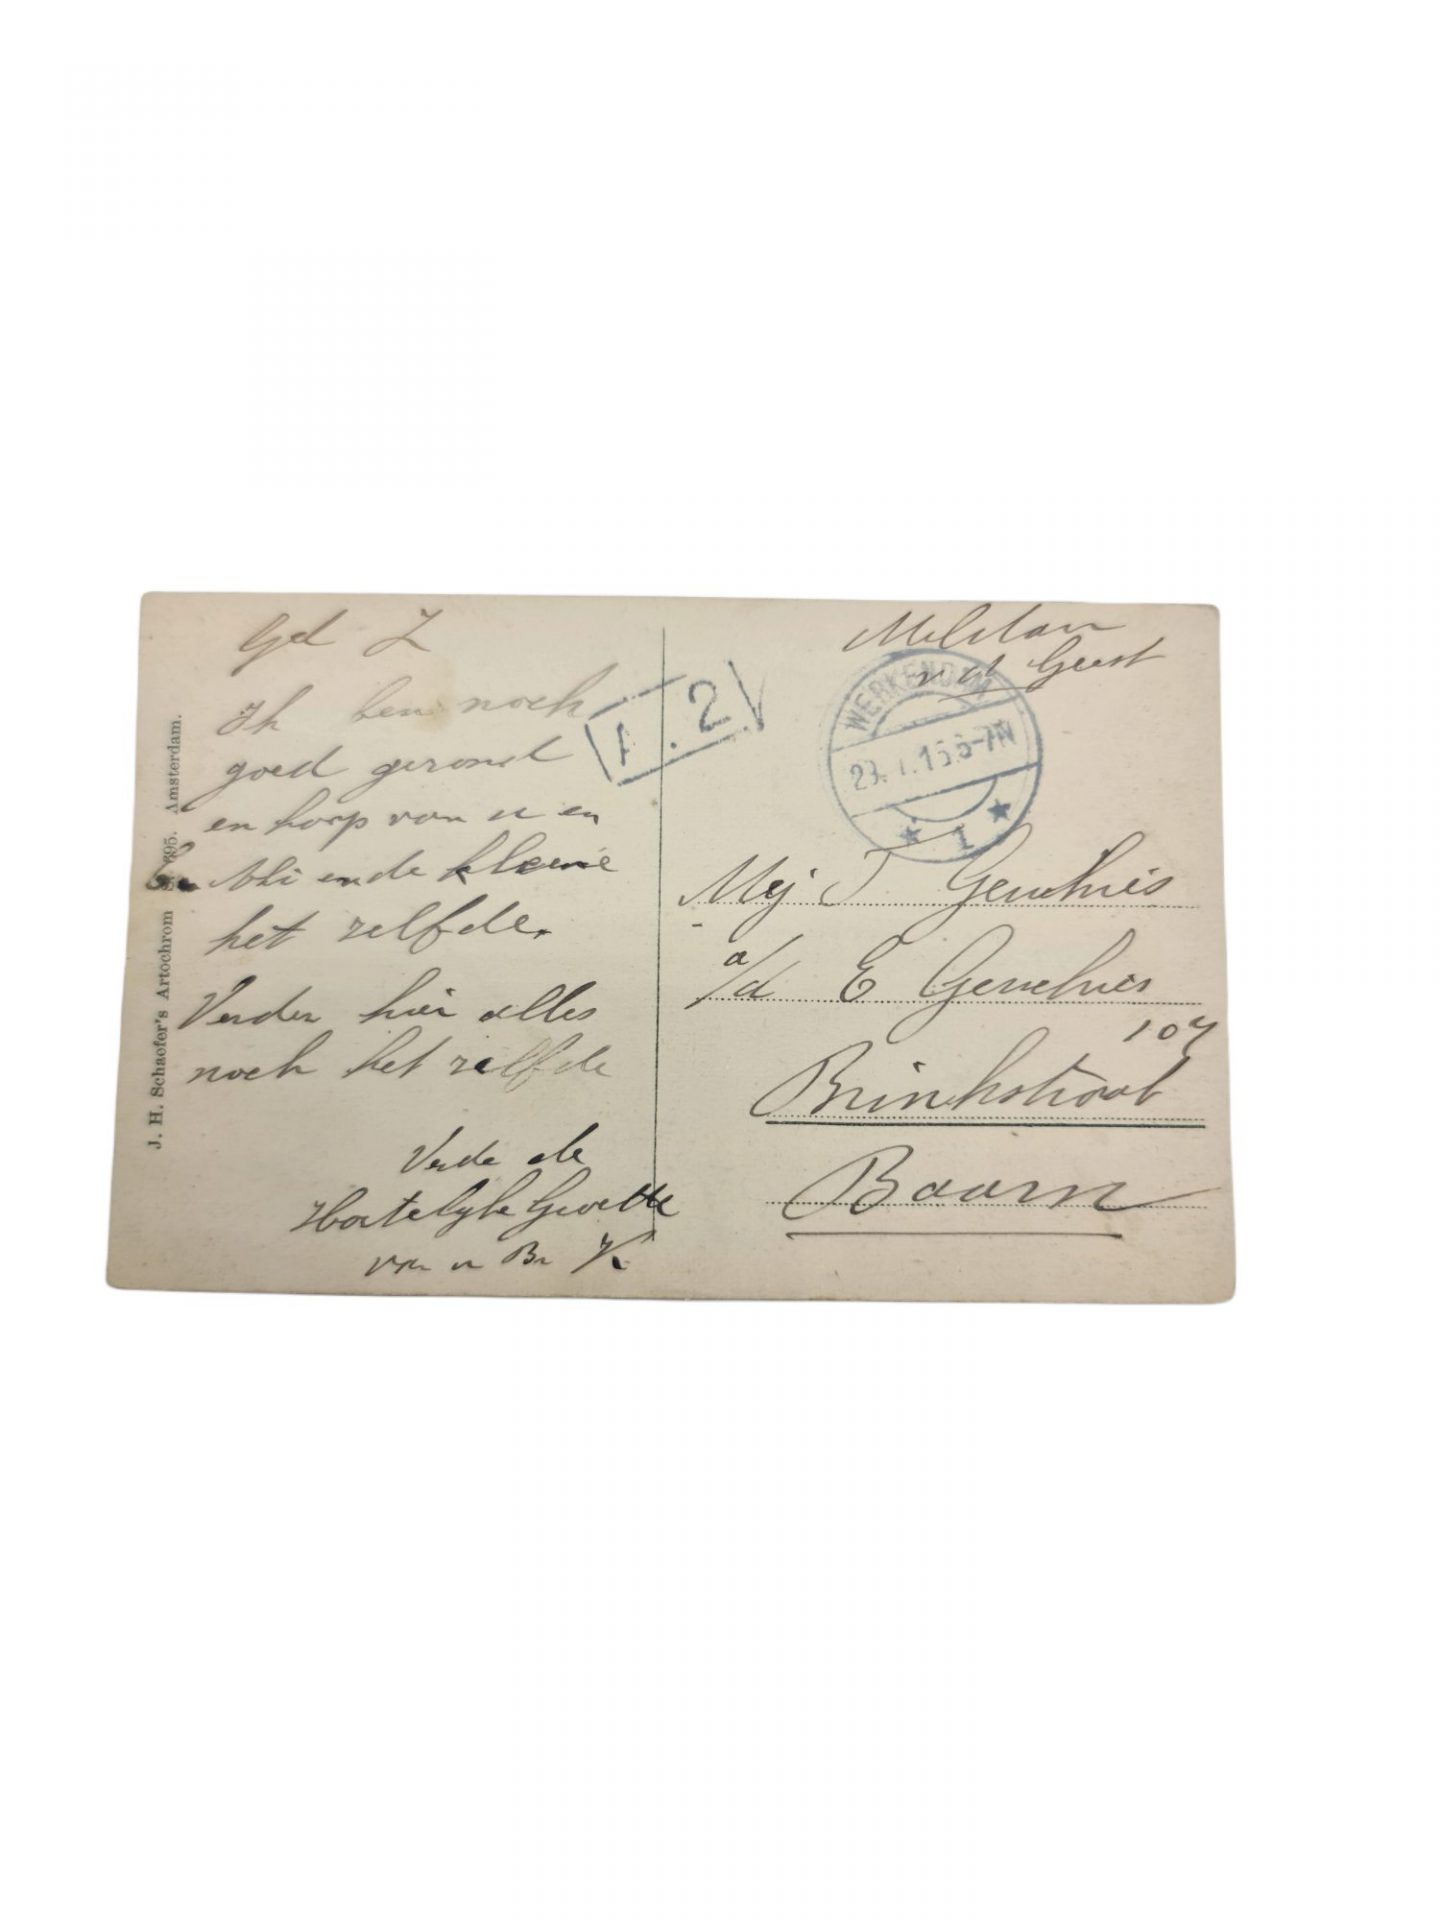 Gd Z
Ik ben noch
goed gezond
en hoop van u en
en de kleine
het zelfde.
Verder hier alles
noch het zelfde
Verde de
Hartelyke Groette
van u Br K.
J. H. Schaefer's Artochrom 695. Amsterdam.
1.2
Melitair
v d Geest
WERKENDAM
29.7.15 6-7N
1
Mej J Genehuis
a/d E Genehuis
107
Brinkstraat
Baarn